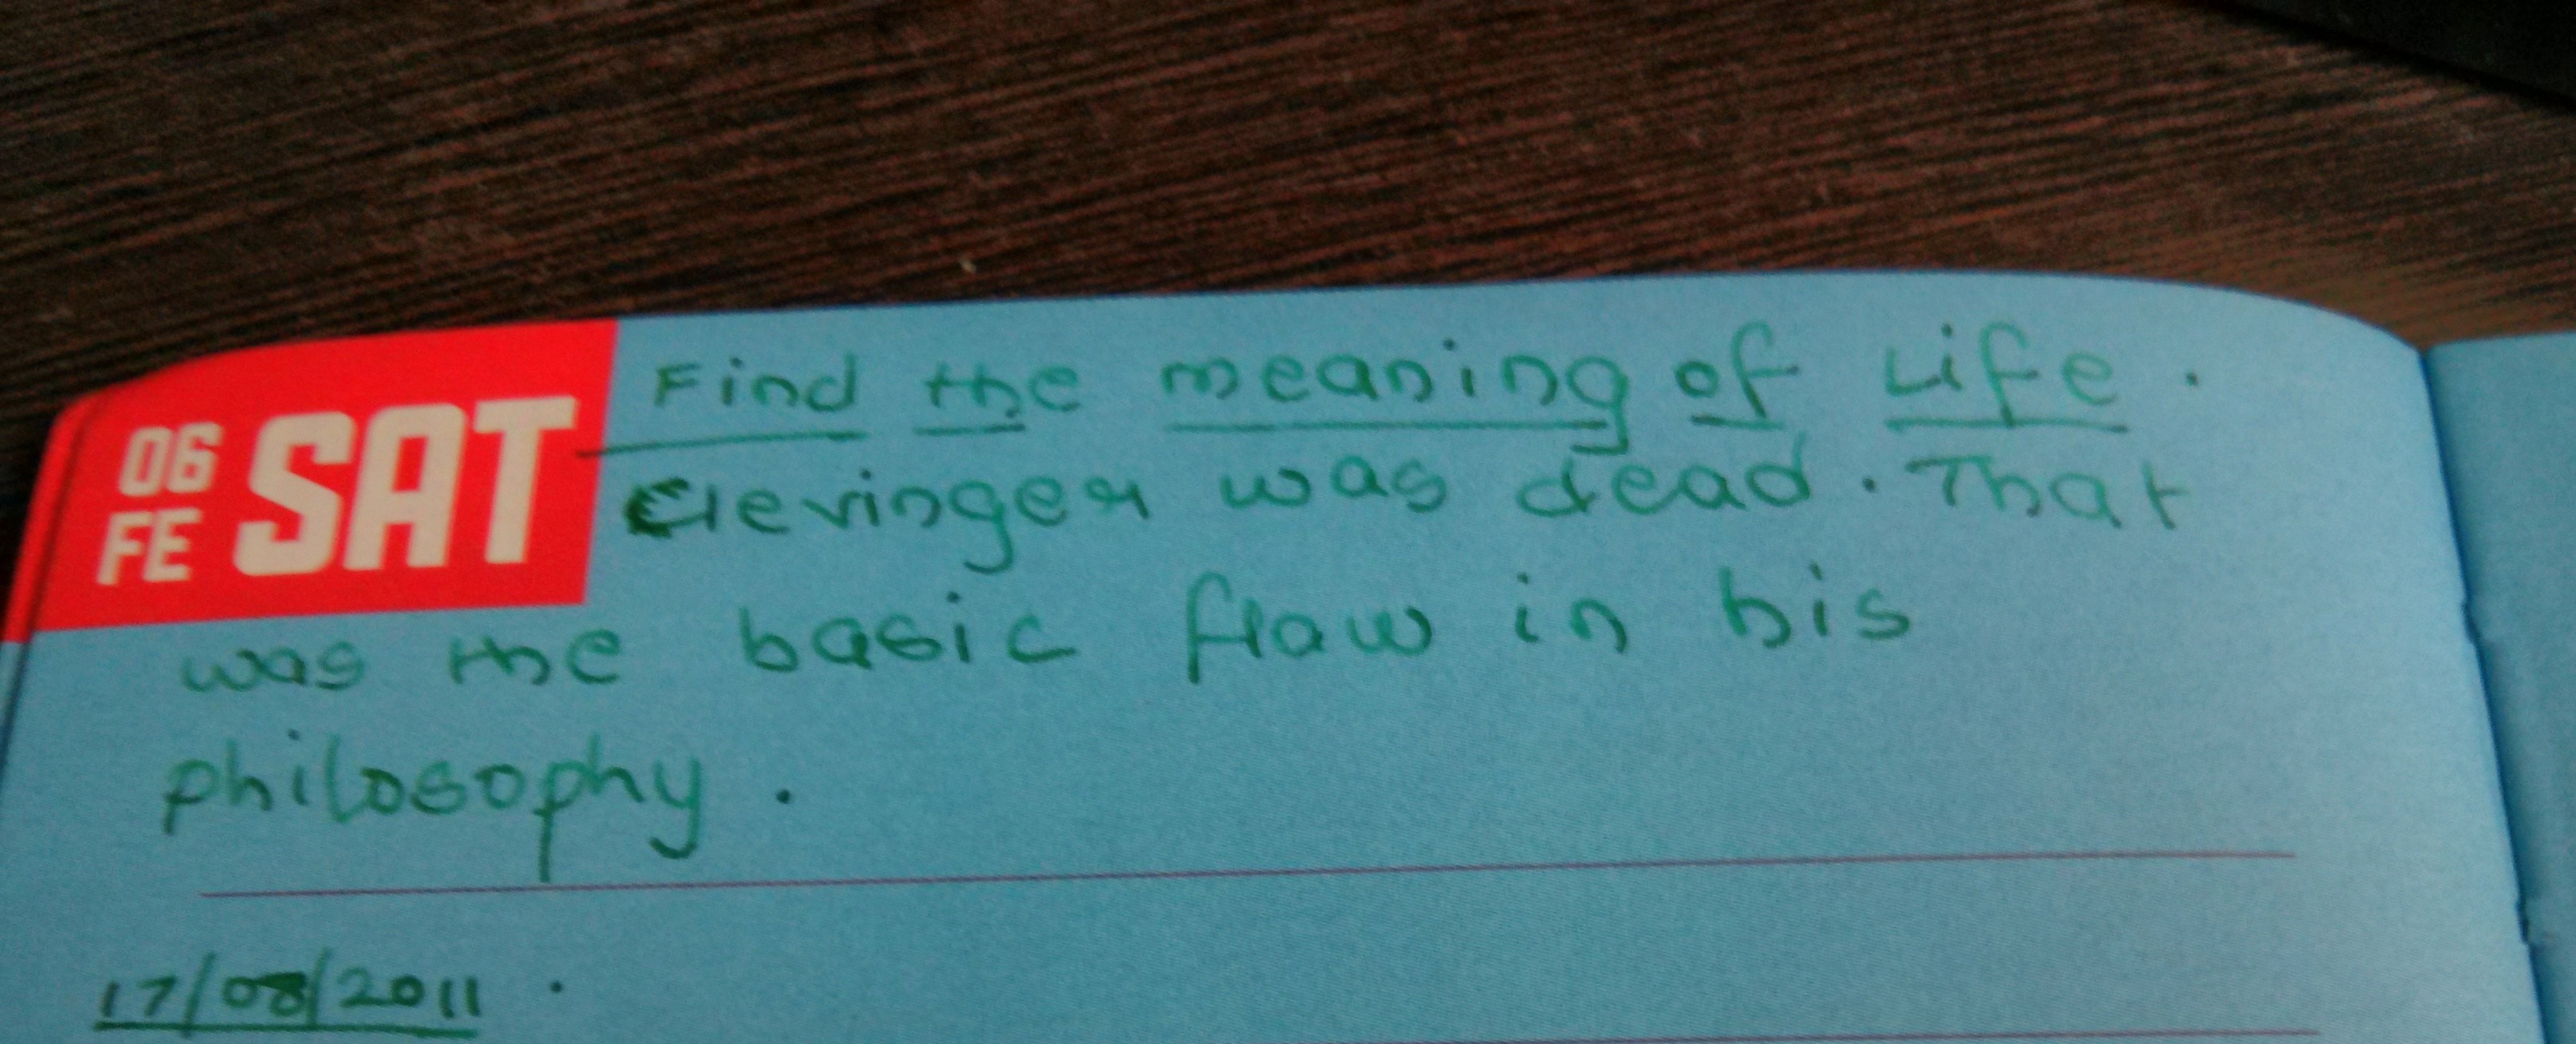 06 SAT
FE
Find the meaning of Life.
Clevinger was dead. That
was the basic flaw in his
philosophy.
17/08/2011.